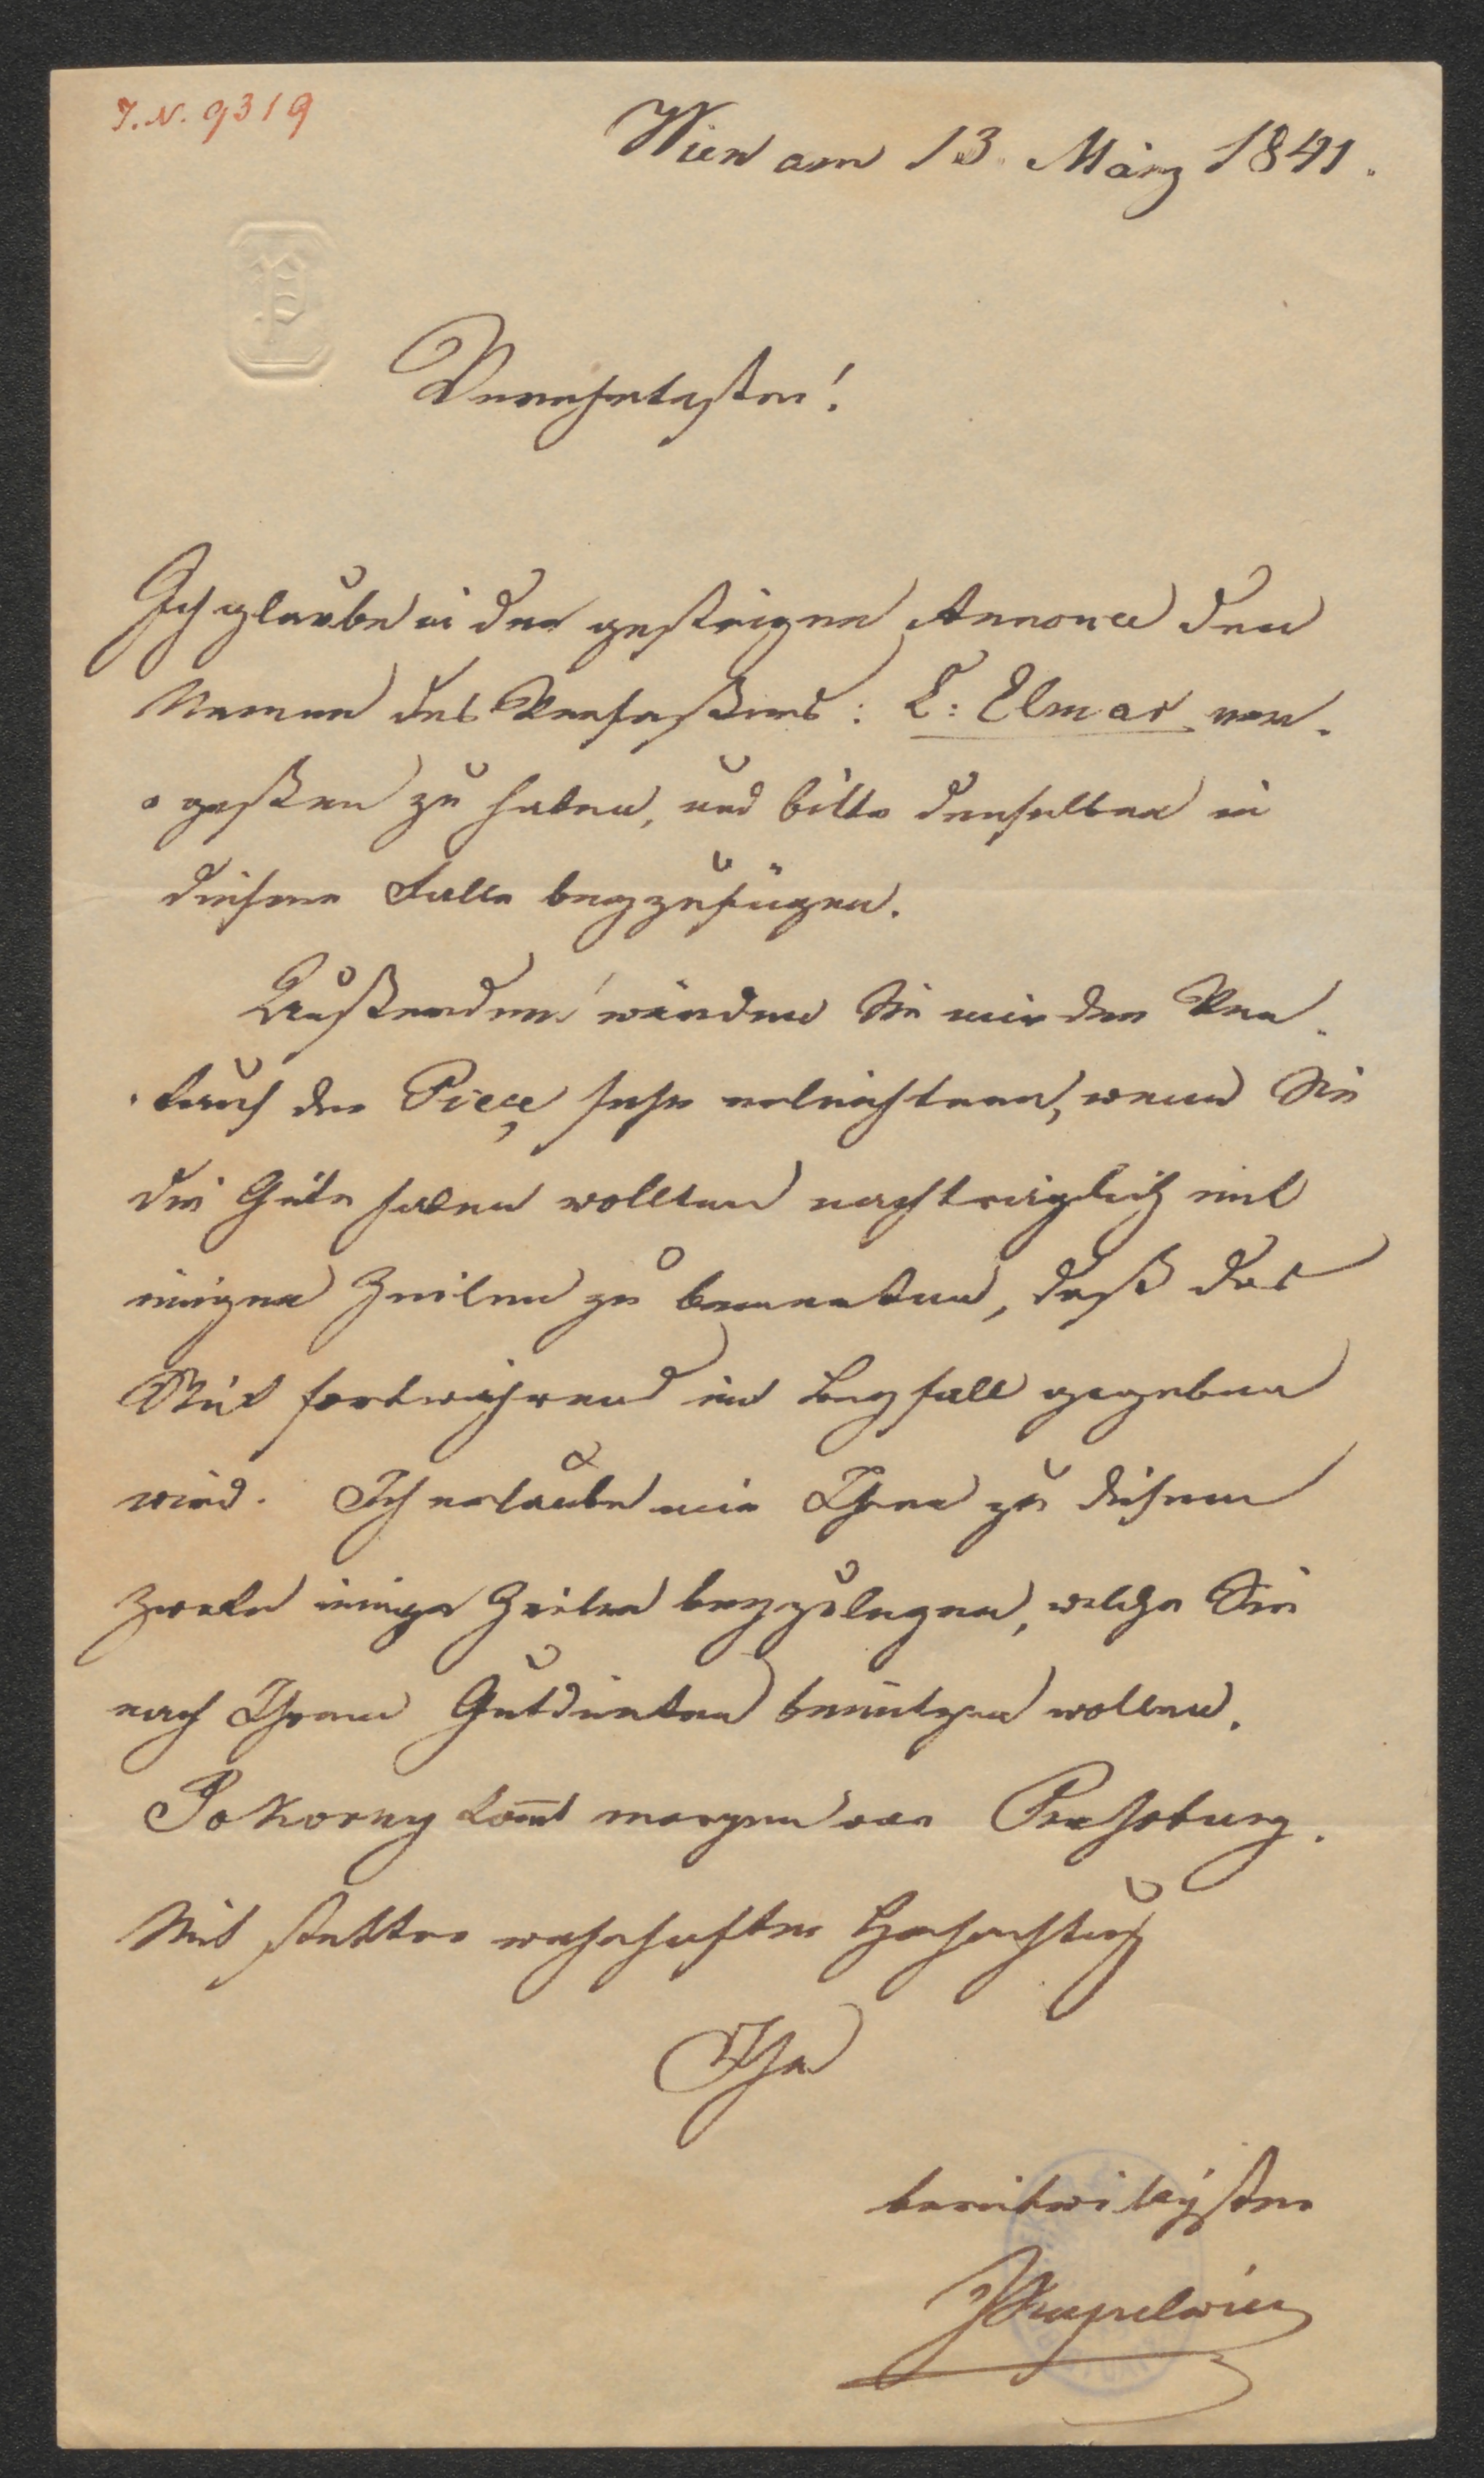 I. N. 9319
Wien am 13. März 1841.
P
Verehrtester!
Ich glaube in der gestrigen Annonce den
Namen des Verfaßers: C: Elmar ver-
-geßen zu haben, und bitte denselben in
diesem Falle beyzufügen.
Außerdem würden Sie mir den Ver-
-kauf der Piece sehr erleichtern, wenn Sie
die Güte haben wollten nachträglich mit
einigen Zeilen zu bemerken, daß das
Stük fortwährend mit Beyfall gegeben
wird. Ich erlaube mir Ihnen zu diesem
Zweke einige Zeilen beyzulegen, welche Sie
nach Ihrem Gutdünken benützen wollen.
Pokorny kom̅t morgen von Preßburg.
Mit steter wahrhafter Hochachtung
Ihr
bereitwilligster
Kupelwieser